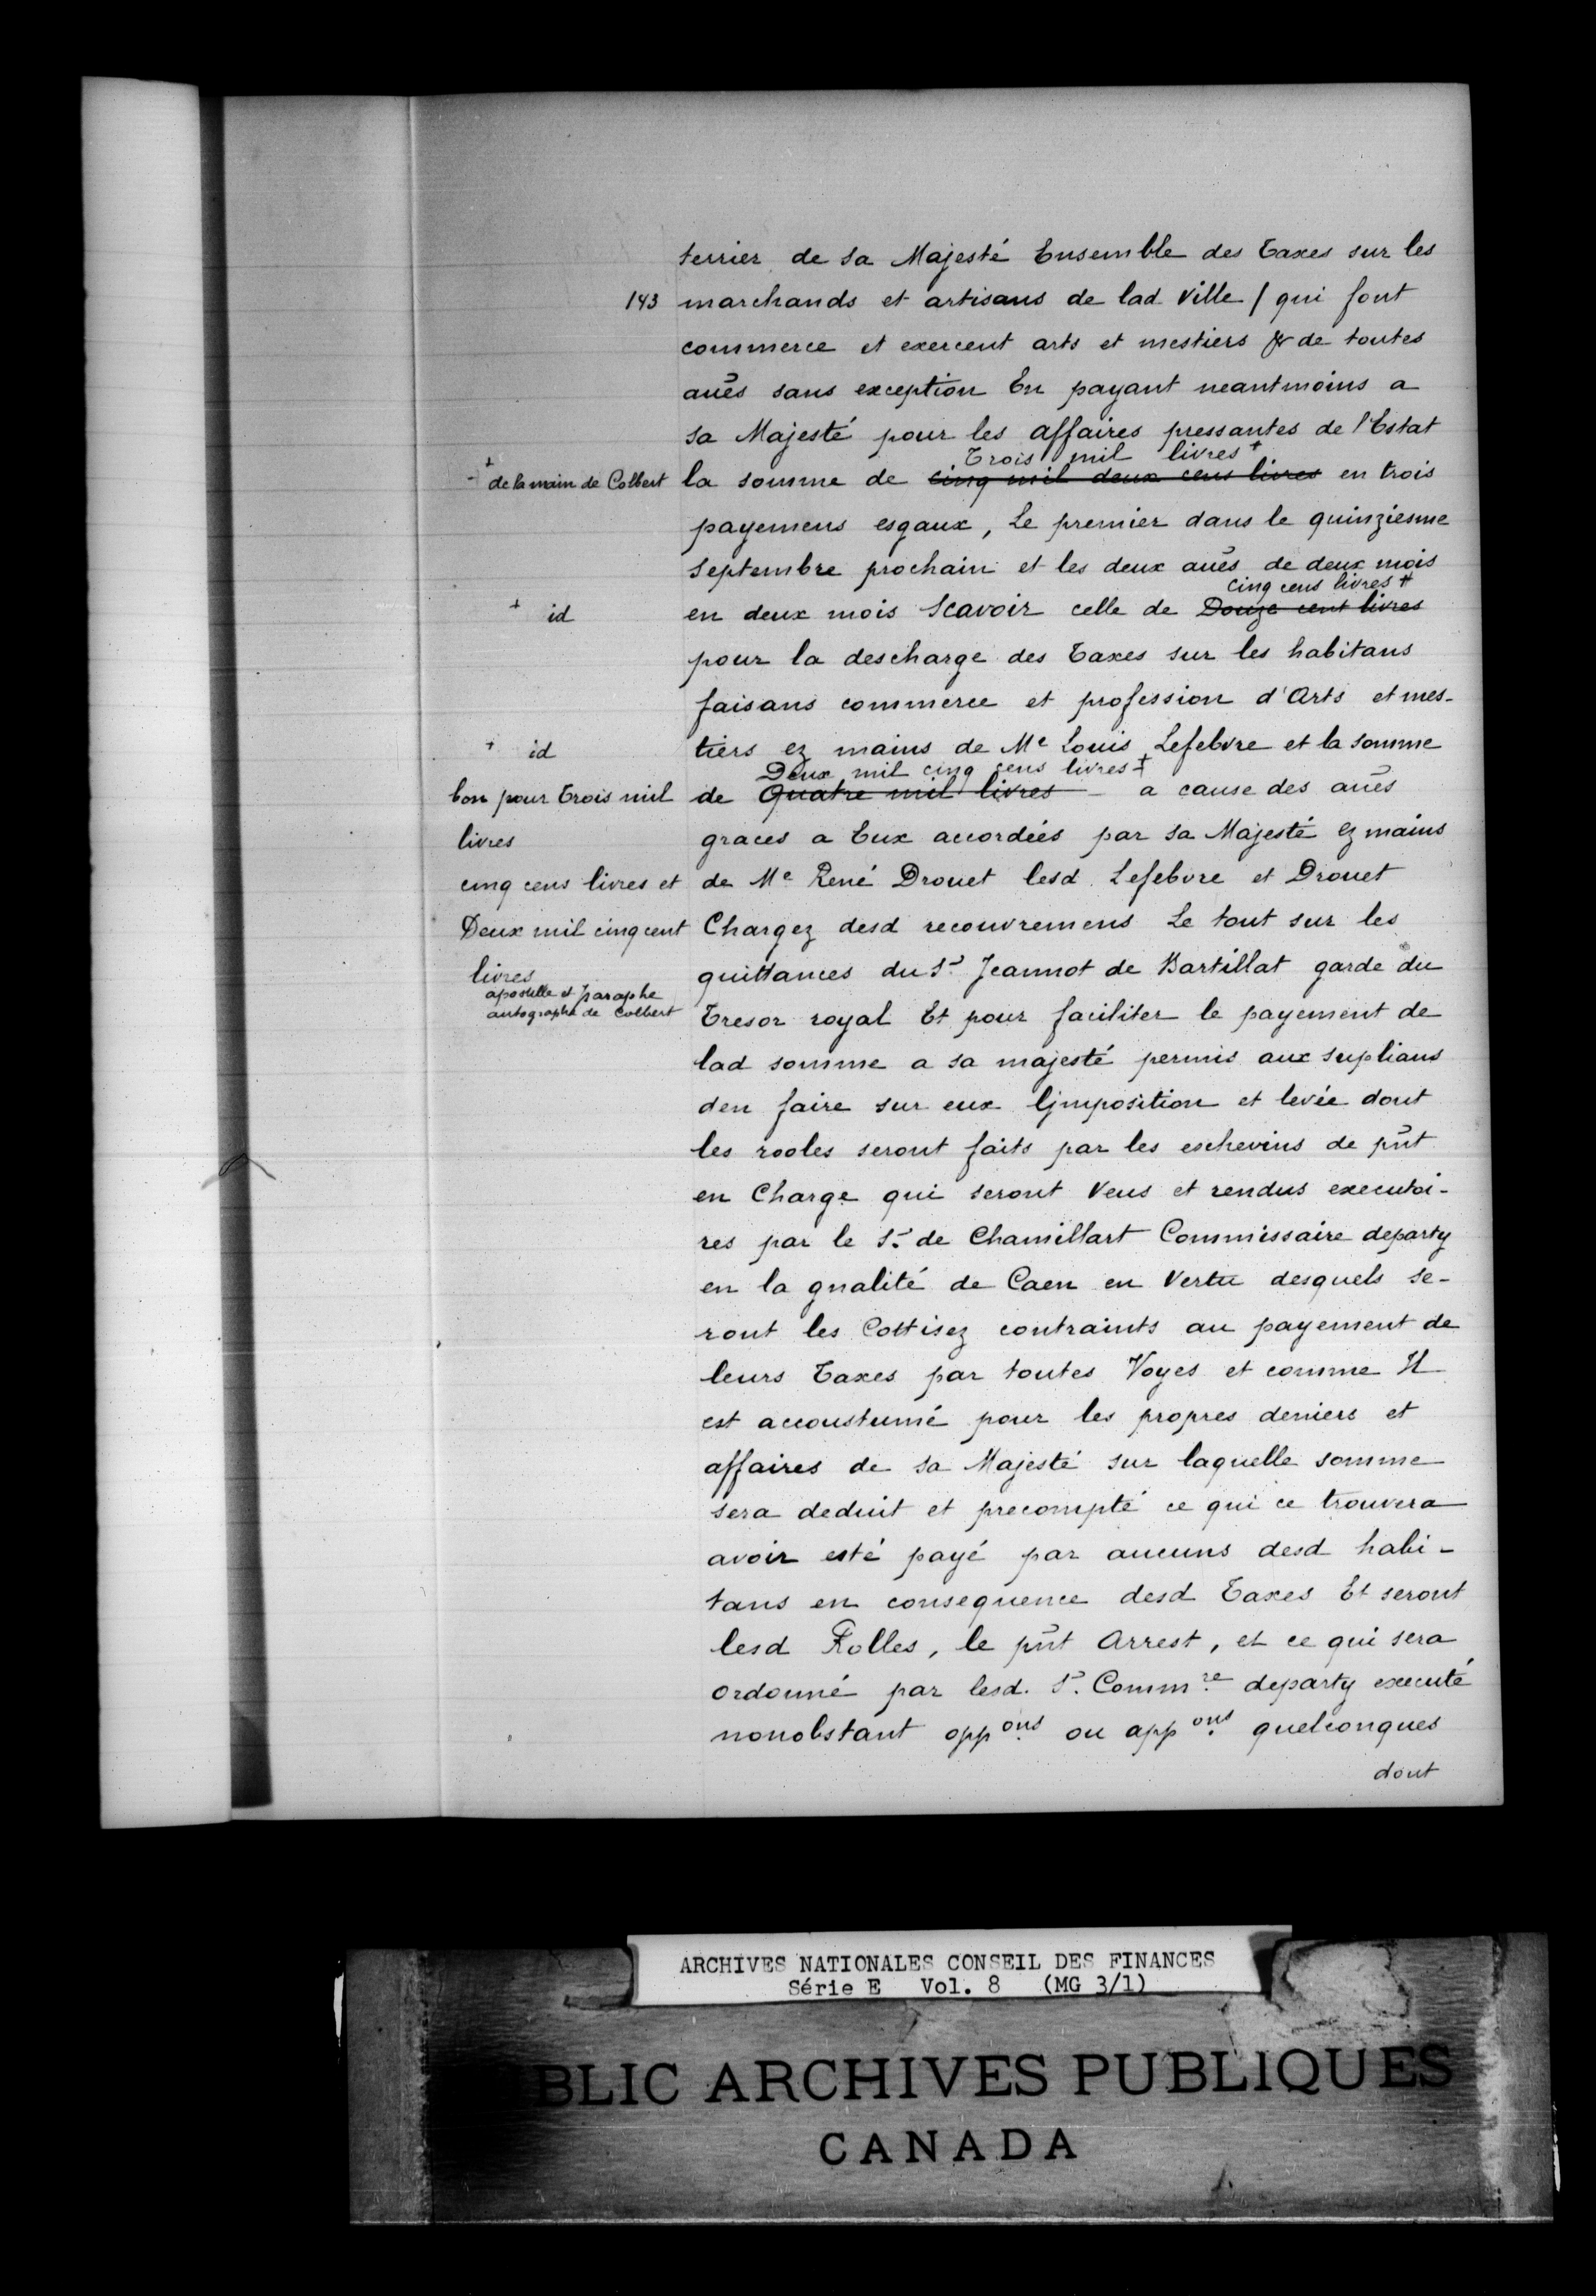 terrier de sa Majesté Ensemble des Taxes sur les
143 marchands et artisans de lad ville / qui font
commerce et exercent arts et mestiers & de toutes
aūēs sans exception En payant neantmoins a
sa Majesté pour les affaires pressantes de l'Estat
Trois mil livres +
+ de la main de Colbert
la somme de cinq mil deux cens livres en trois
payemens esgaux, Le premier dans le quinziesme
septembre prochain et les deux aūēs de deux mois
cinq cens livres +
+ id
en deux mois Scavoir celle de Douze cent livres
pour la descharge des Taxes sur les habitans
faisans commerce et profession d'Arts et mes-
+ id
tiers ez mains de Me Louis Lefebvre et la somme
Deux mil cinq cens livres +
bon pour Trois mil
de Quatre mil livres - a cause des aūēs
livres
graces a Eux accordées par sa Majesté Ez mains
cinq cens livres et
de Me René Drouet lesd. Lefebvre et Drouet
Deux mil cinq cent
Chargez desd recouvremens Le tout sur les
livres
quittances du Sr Jeannot de Bartillat garde du
apostille et paraphe
autographe de Colbert
Tresor royal Et pour faciliter le payement de
lad somme a sa majesté permis aux suplians
den faire sur eux Ljmposition et levée dont
les rooles seront faits par les eschevins de pūt
en Charge qui seront Veus et rendus executoi-
res par le Sr de Chamillart Commissaire departy
en la gnalité de Caen en Vertu desquels se-
ront les Cottisez contraints au payement de
leurs Taxes par toutes Voyes et comme Il
est accoustumé pour les propres deniers et
affaires de sa Majesté sur laquelle somme
sera deduit et precompté ce qui ce trouvera
avoir esté payé par aucuns desd habi-
tans en consequence desd Taxes Et seront
lesd Rolles, le pūt Arrest, et ce qui sera
ordonné par lesd. Sr. Commre departy executé
nonobstant oppons ou appons quelconques
dont
ARCHIVES NATIONALES CONSEIL DES FINANCES
Série E Vol. 8 (MG 3/1)
BLIC ARCHIVES PUBLIQUES
CANADA